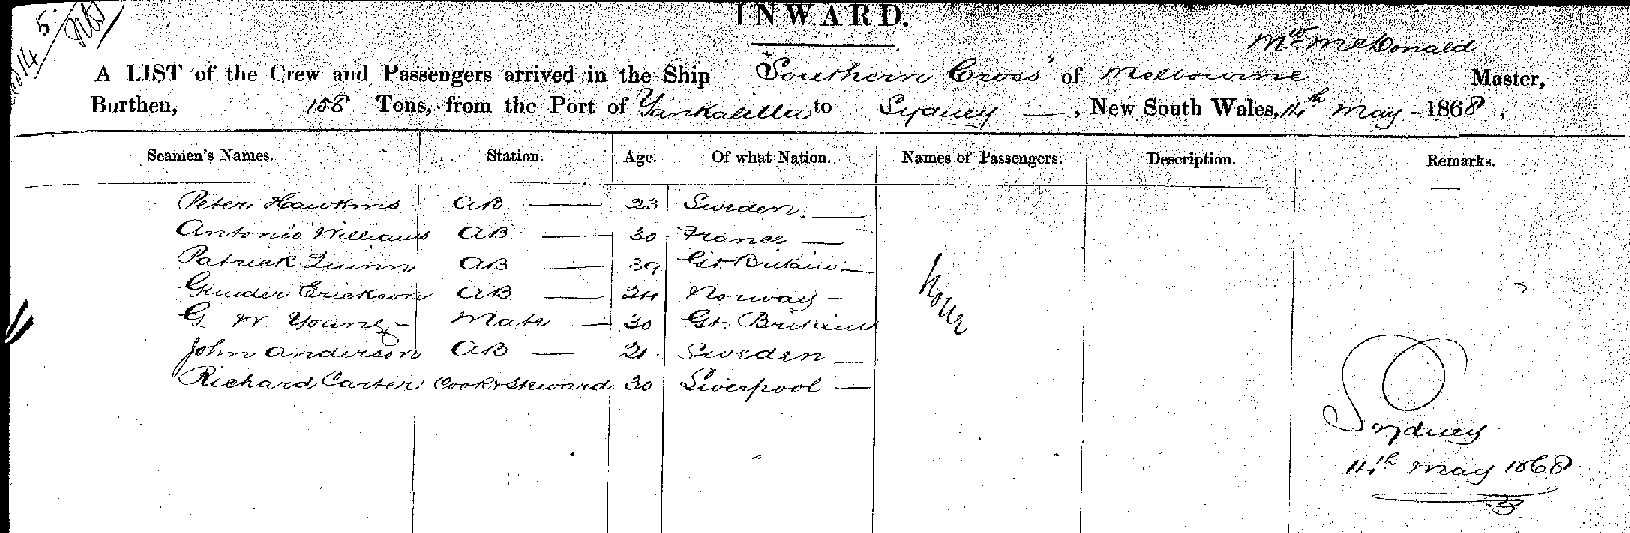 INWARD.
McDonald
A LIST of the Crew and Passengers arrived in the Ship "Southern Cross" of Melbourne Master,
Burthen, 158 Tons, from the Port of Yankalilla to Sydney — , New South Wales, 14th May 1868.
Seamen's Names. Station. Age. Of what Nation. Names of Passengers. Description. Remarks.
Peter Hawkins AB — 23 Sweden. —
Antonio Williams AB — 30 France —
Patrick Quinn AB — 39 Gt. Britain —
Erickson AB — 24 Norway —
G W Young — Mate — 30 Gt. Britain
John Anderson AB — 21 Sweden —
Richard Carter Cook & Steward 30 Liverpool —
Sydney
14th May 1868